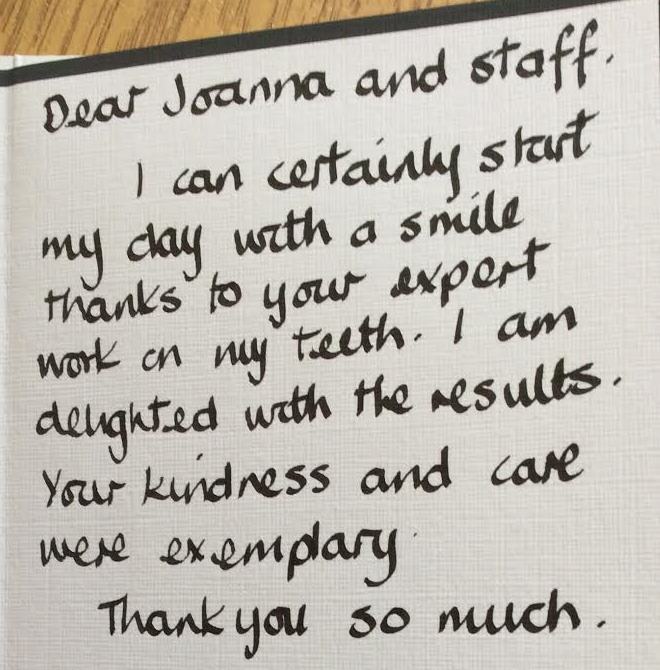 Dear Joanna and staff.
I can certainly start
my day with a smile
thanks to your expert
work on my teeth. I am
delighted with the results.
Your kindness and care
were exemplary.
Thank you so much.